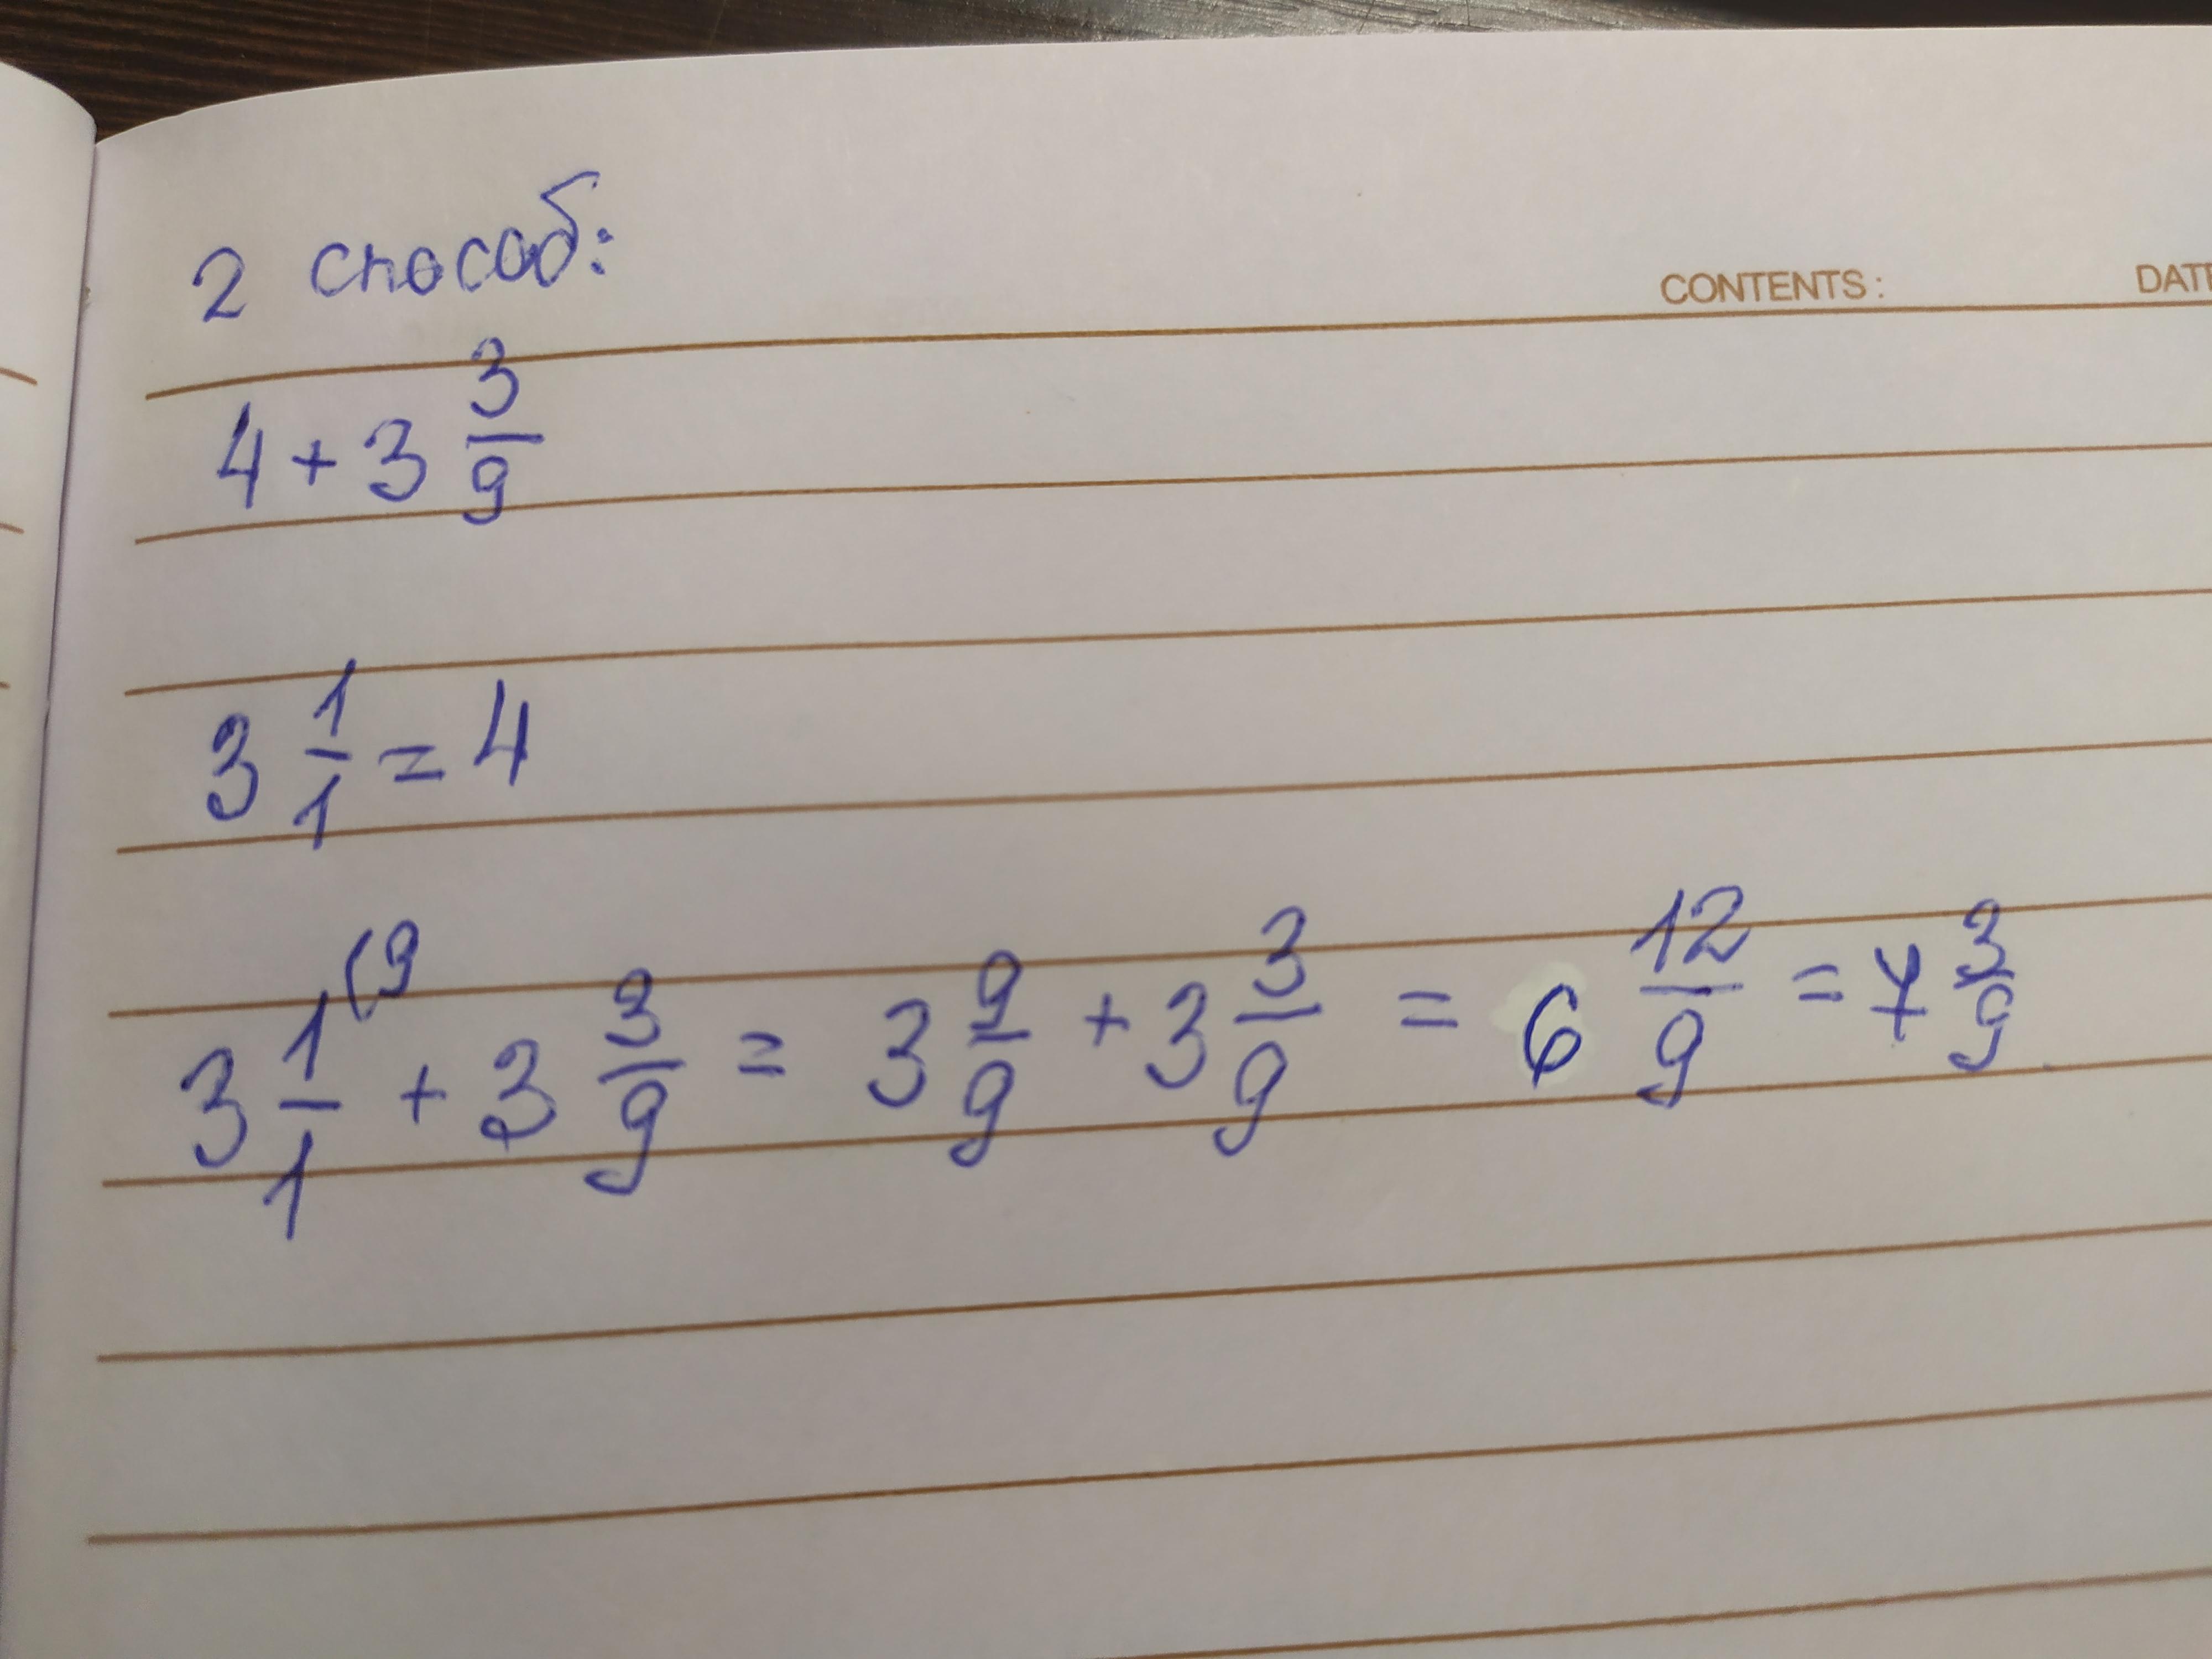 2 способ:
CONTENTS: DATE
4 + 3 3/9
3 1/1 = 4
3 1/1 (9 + 3 3/9 = 3 9/9 + 3 3/9 = 6 12/9 = 7 3/9